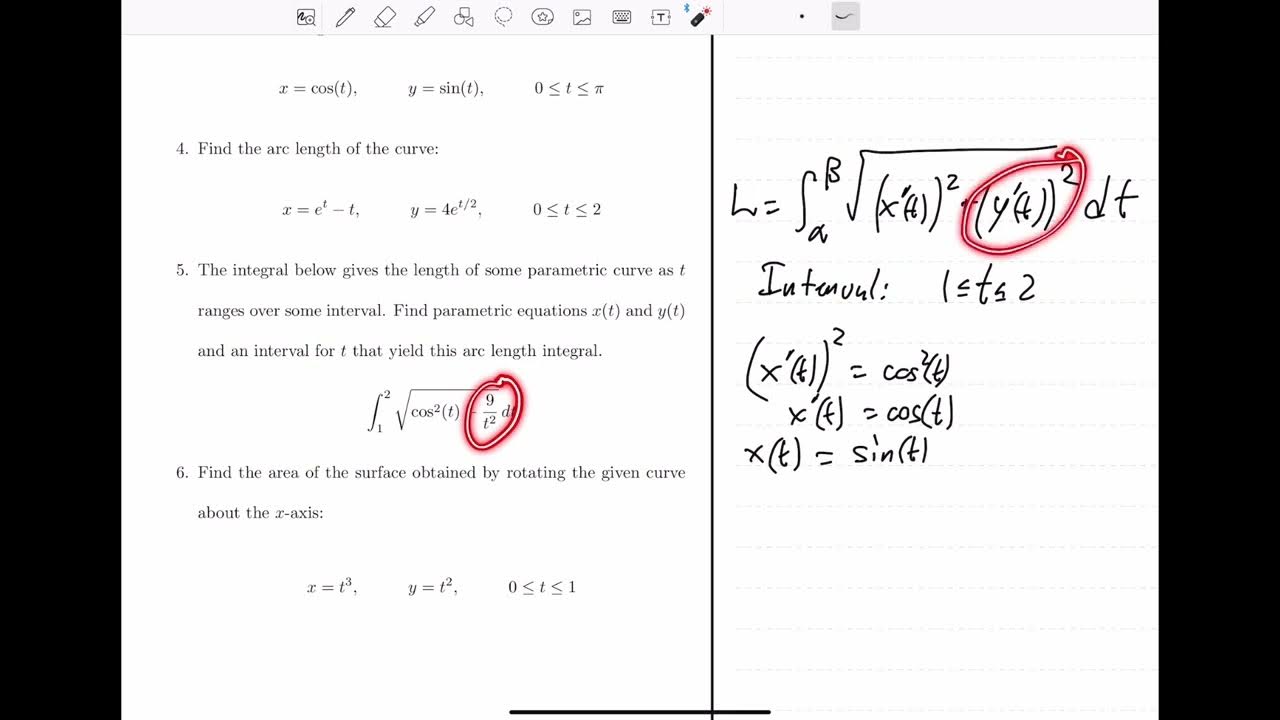 x = cos(t), y = sin(t), 0 ≤ t ≤ π
4. Find the arc length of the curve:
x = e^t − t, y = 4e^{t/2}, 0 ≤ t ≤ 2
5. The integral below gives the length of some parametric curve as t
ranges over some interval. Find parametric equations x(t) and y(t)
and an interval for t that yield this arc length integral.
∫_1^2 √(cos²(t) + 9/t²) dt
6. Find the area of the surface obtained by rotating the given curve
about the x-axis:
x = t³, y = t², 0 ≤ t ≤ 1
L = ∫_α^β √((x'(t))² + (y'(t))²) dt
Interval: 1 ≤ t ≤ 2
(x'(t))² = cos²(t)
x'(t) = cos(t)
x(t) = sin(t)